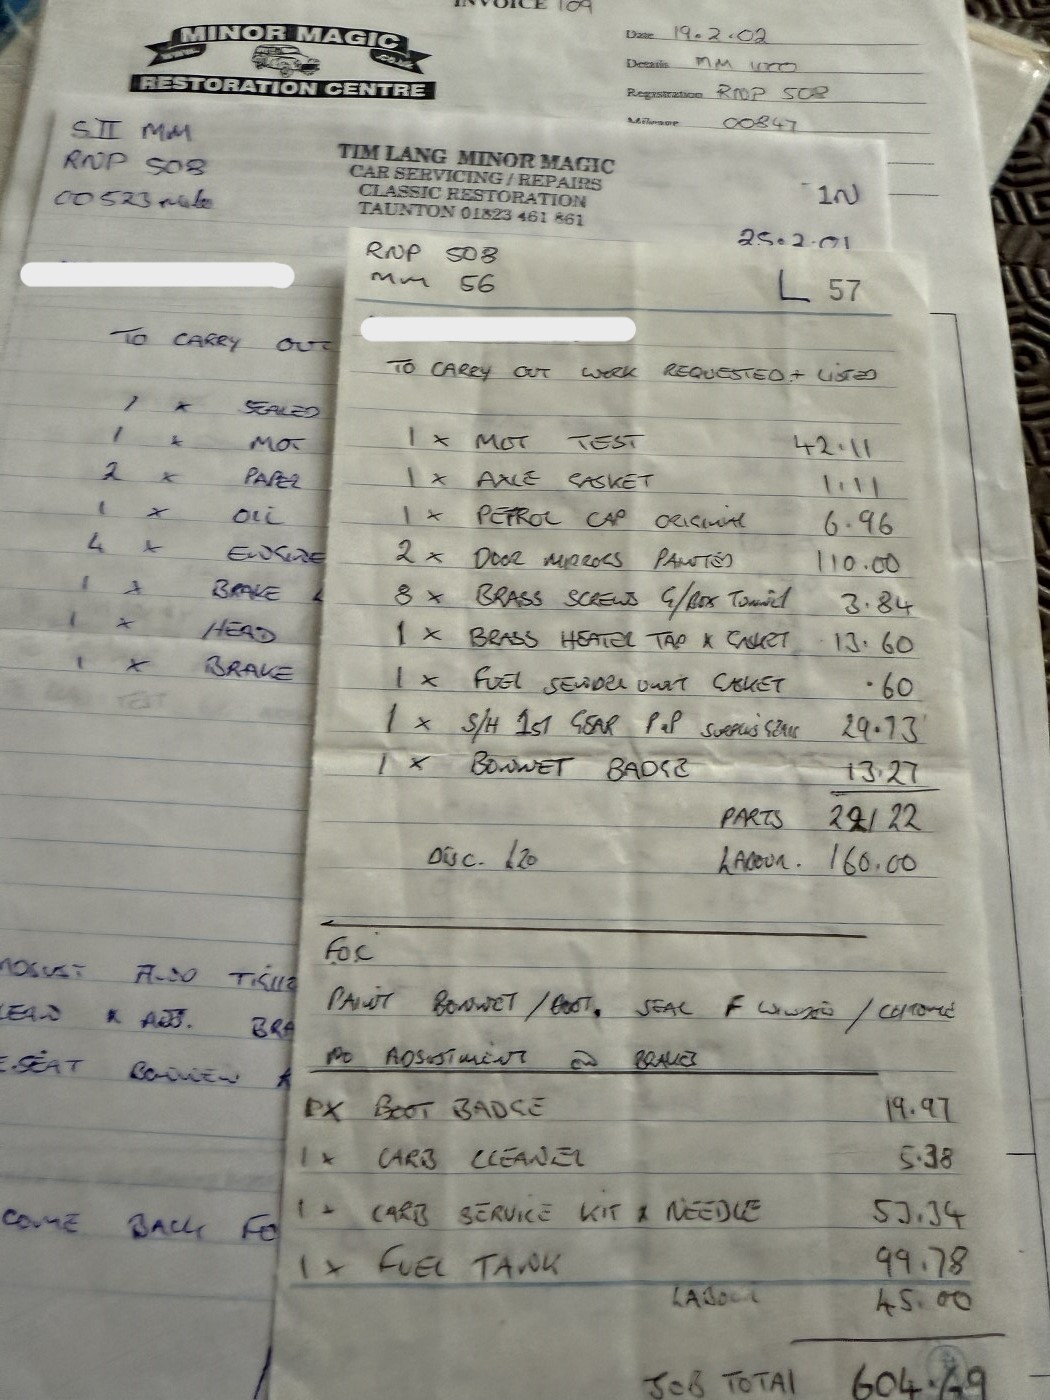 INVOICE 109
MINOR MAGIC
RESTORATION CENTRE
Date 19.2.02
Details MM
Registration RNP 508
Mileage 00847
SII MM
RNP 508
00523
TIM LANG MINOR MAGIC
CAR SERVICING / REPAIRS
CLASSIC RESTORATION
TAUNTON 01823 461 861
IN
25.2.01
TO CARRY OUT
1 x SEALED
1 x MOT
2 x PAPER
1 x OIL
4 x
1 x BRAKE
1 x HEAD
1 x BRAKE
ALSO
& ADJ. BRA
COME BACK FO
RNP 508
MM 56
L 57
TO CARRY OUT WORK REQUESTED + LISTED
1 x MOT TEST 42.11
1 x AXLE GASKET 1.11
1 x PETROL CAP ORIGINAL 6.96
2 x DOOR MIRRORS PAINTED 110.00
8 x BRASS SCREWS G/BOX TUNNEL 3.84
1 x BRASS HEATER TAP & GASKET 13.60
1 x FUEL SENDER UNIT GASKET .60
1 x S/H 1st GEAR P+P 29.73
1 x BONNET BADGE 13.27
PARTS 221 22
DISC. £20 LABOUR. 160.00
FOC
PAINT BONNET / BOOT. SEAL F / CHROME
NO ADJUSTMENT ON BRAKES
BOOT BADGE 19.97
1 x CARB CLEANER 5.38
1 x CARB SERVICE KIT & NEEDLE 53.34
1 x FUEL TANK 99.78
LABOUR 45.00
JOB TOTAL